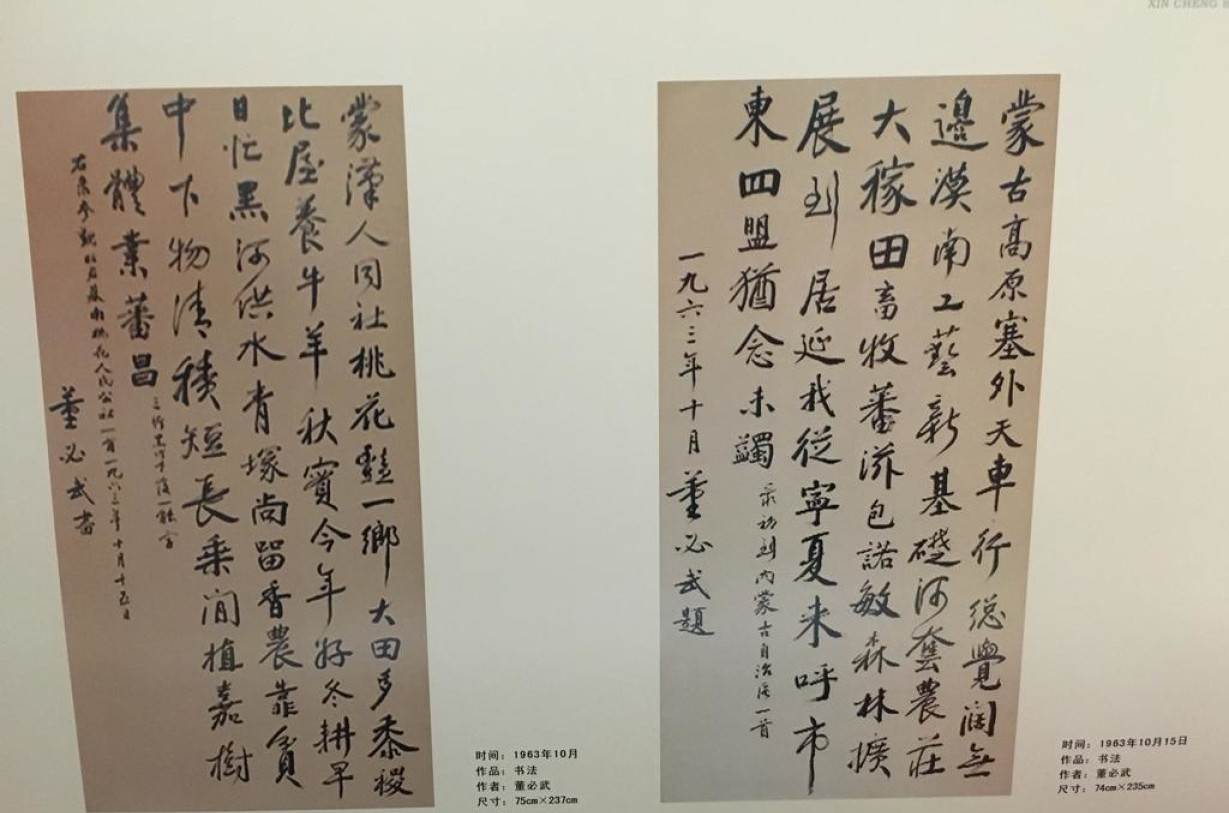 XIN CHENG
蒙漢人同社桃花豔一鄉大田多黍稷
比屋養牛羊秋實今年好冬耕早
日忙黑河供水青塚尚留香農靠貧
中下物清積短長乘閒植嘉樹
集體業蕃昌
右录参觀 桃花人民公社一首一九六三年十月十五日
董必武書
时间：1963年10月
作品：书法
作者：董必武
尺寸：75cm×237cm
蒙古高原塞外天車行總覺闊無
邊漠南工藝新基礎河套農莊
大稼田畜牧蕃滋包諾敏森林擴
展到居延我從寧夏來呼市
東四盟猶念未躅
录初到内蒙古自治區一首
一九六三年十月董必武題
时间：1963年10月15日
作品：书法
作者：董必武
尺寸：74cm×235cm